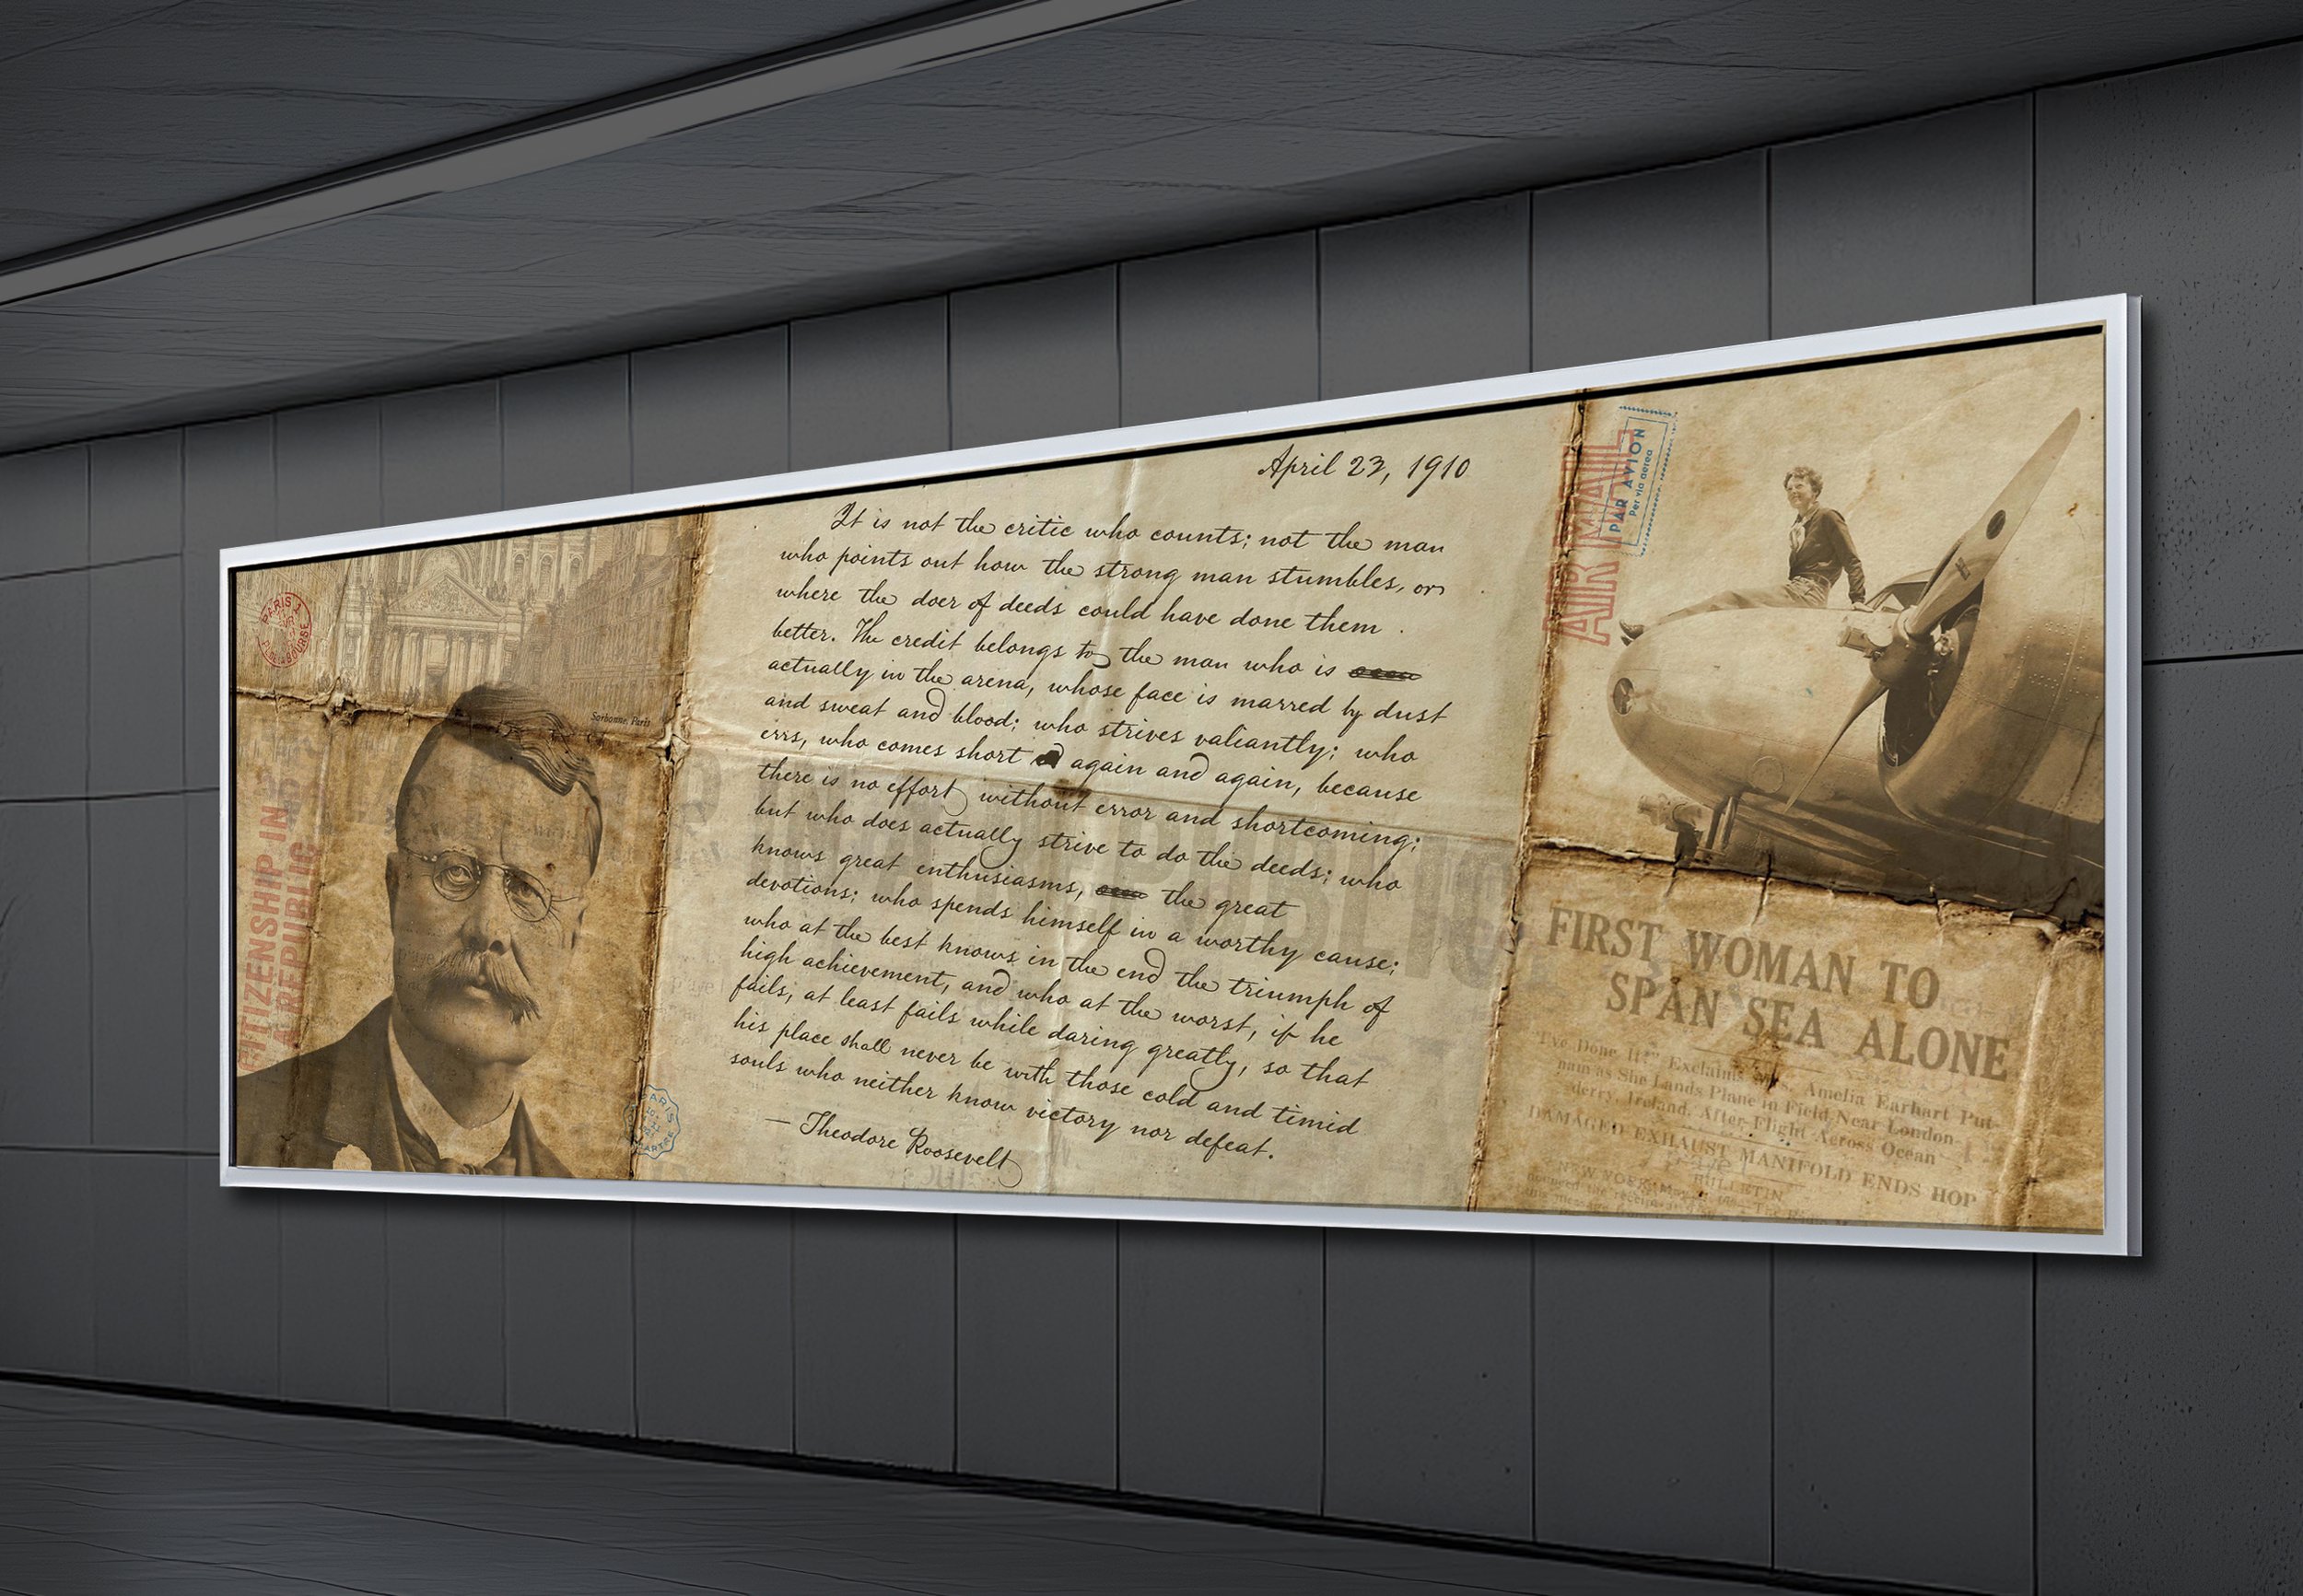 April 23, 1910
It is not the critic who counts; not the man
who points out how the strong man stumbles, or
where the doer of deeds could have done them
better. The credit belongs to the man who is
actually in the arena, whose face is marred by dust
and sweat and blood; who strives valiantly; who
errs, who comes short again and again, because
there is no effort without error and shortcoming;
but who does actually strive to do the deeds; who
knows great enthusiasms, the great
devotions; who spends himself in a worthy cause;
who at the best knows in the end the triumph of
high achievement, and who at the worst, if he
fails, at least fails while daring greatly, so that
his place shall never be with those cold and timid
souls who neither know victory nor defeat.
— Theodore Roosevelt
PARIS 1
BOURSE
Sorbonne, Paris
CITIZENSHIP IN
A REPUBLIC
PARIS
AIR MAIL
PAR AVION
Per via aerea
FIRST WOMAN TO
SPAN SEA ALONE
"I've Done It!" Exclaims Mrs. Amelia Earhart Put-
nam as She Lands Plane in Field Near London-
derry, Ireland, After Flight Across Ocean
DAMAGED EXHAUST MANIFOLD ENDS HOP
BULLETIN
NEW YORK, May